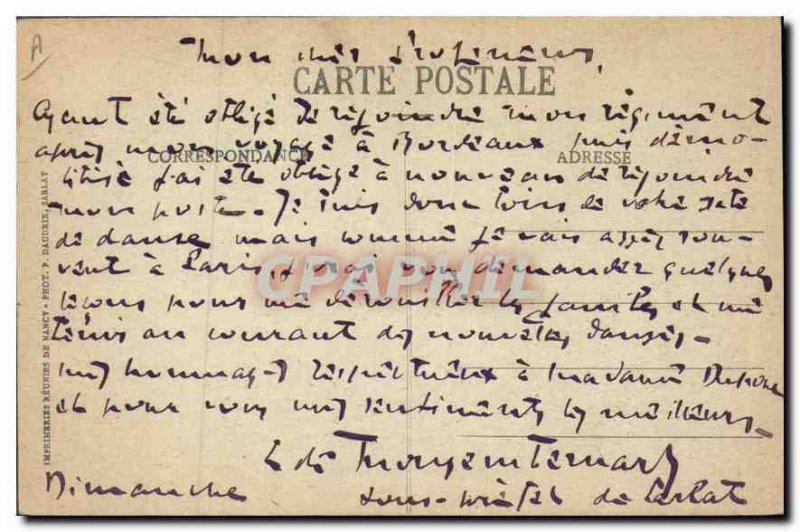 A
Mon cher Professeur,
CARTE POSTALE
Ayant été obligé de rejoindre mon régiment
après mon voyage à Bordeaux puis démo-
CORRESPONDANCE
ADRESSE
bilisé j'ai été obligé à nouveau de rejoindre
mon poste. Je suis donc loin de votre
de danse mais comme je vais assez sou-
vent à Paris, vous demander quelques
CPARAPHIL
leçons pour me dérouiller les jambes et me
tenir au courant des nouvelles danses.
mes hommages respectueux à Madame
et pour vous mes sentiments les meilleurs.
L de
Dimanche
sous-préfet de Sarlat
IMPRIMERIES RÉUNIES DE NANCY - PHOT. P. DAUDRIX, SARLAT